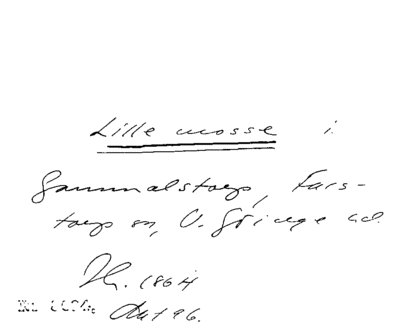 Lille mosse i
Gammalstorp, Fars-
torps sn, V. Göinge hd.
Th. 1864
Akt 96.